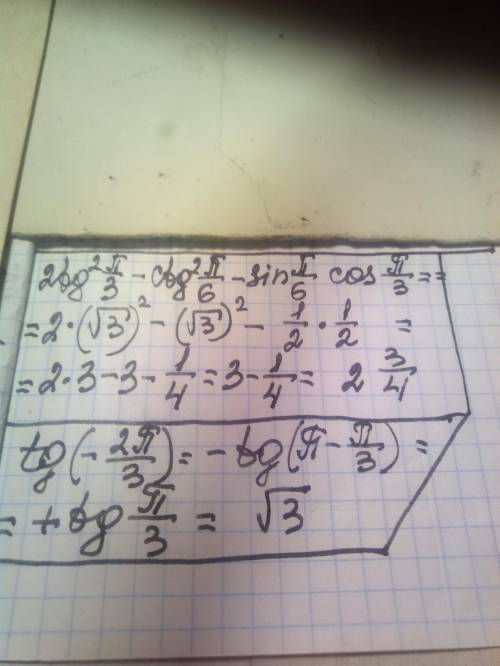 2tg²π/3 - ctg²π/6 - sin π/6 cos π/3 ==
= 2·(√3)² - (√3)² - 1/2 · 1/2 =
= 2·3-3- 1/4 = 3- 1/4 = 2 3/4
tg(- 2π/3) = - tg(π- π/3) =
= + tg π/3 = √3